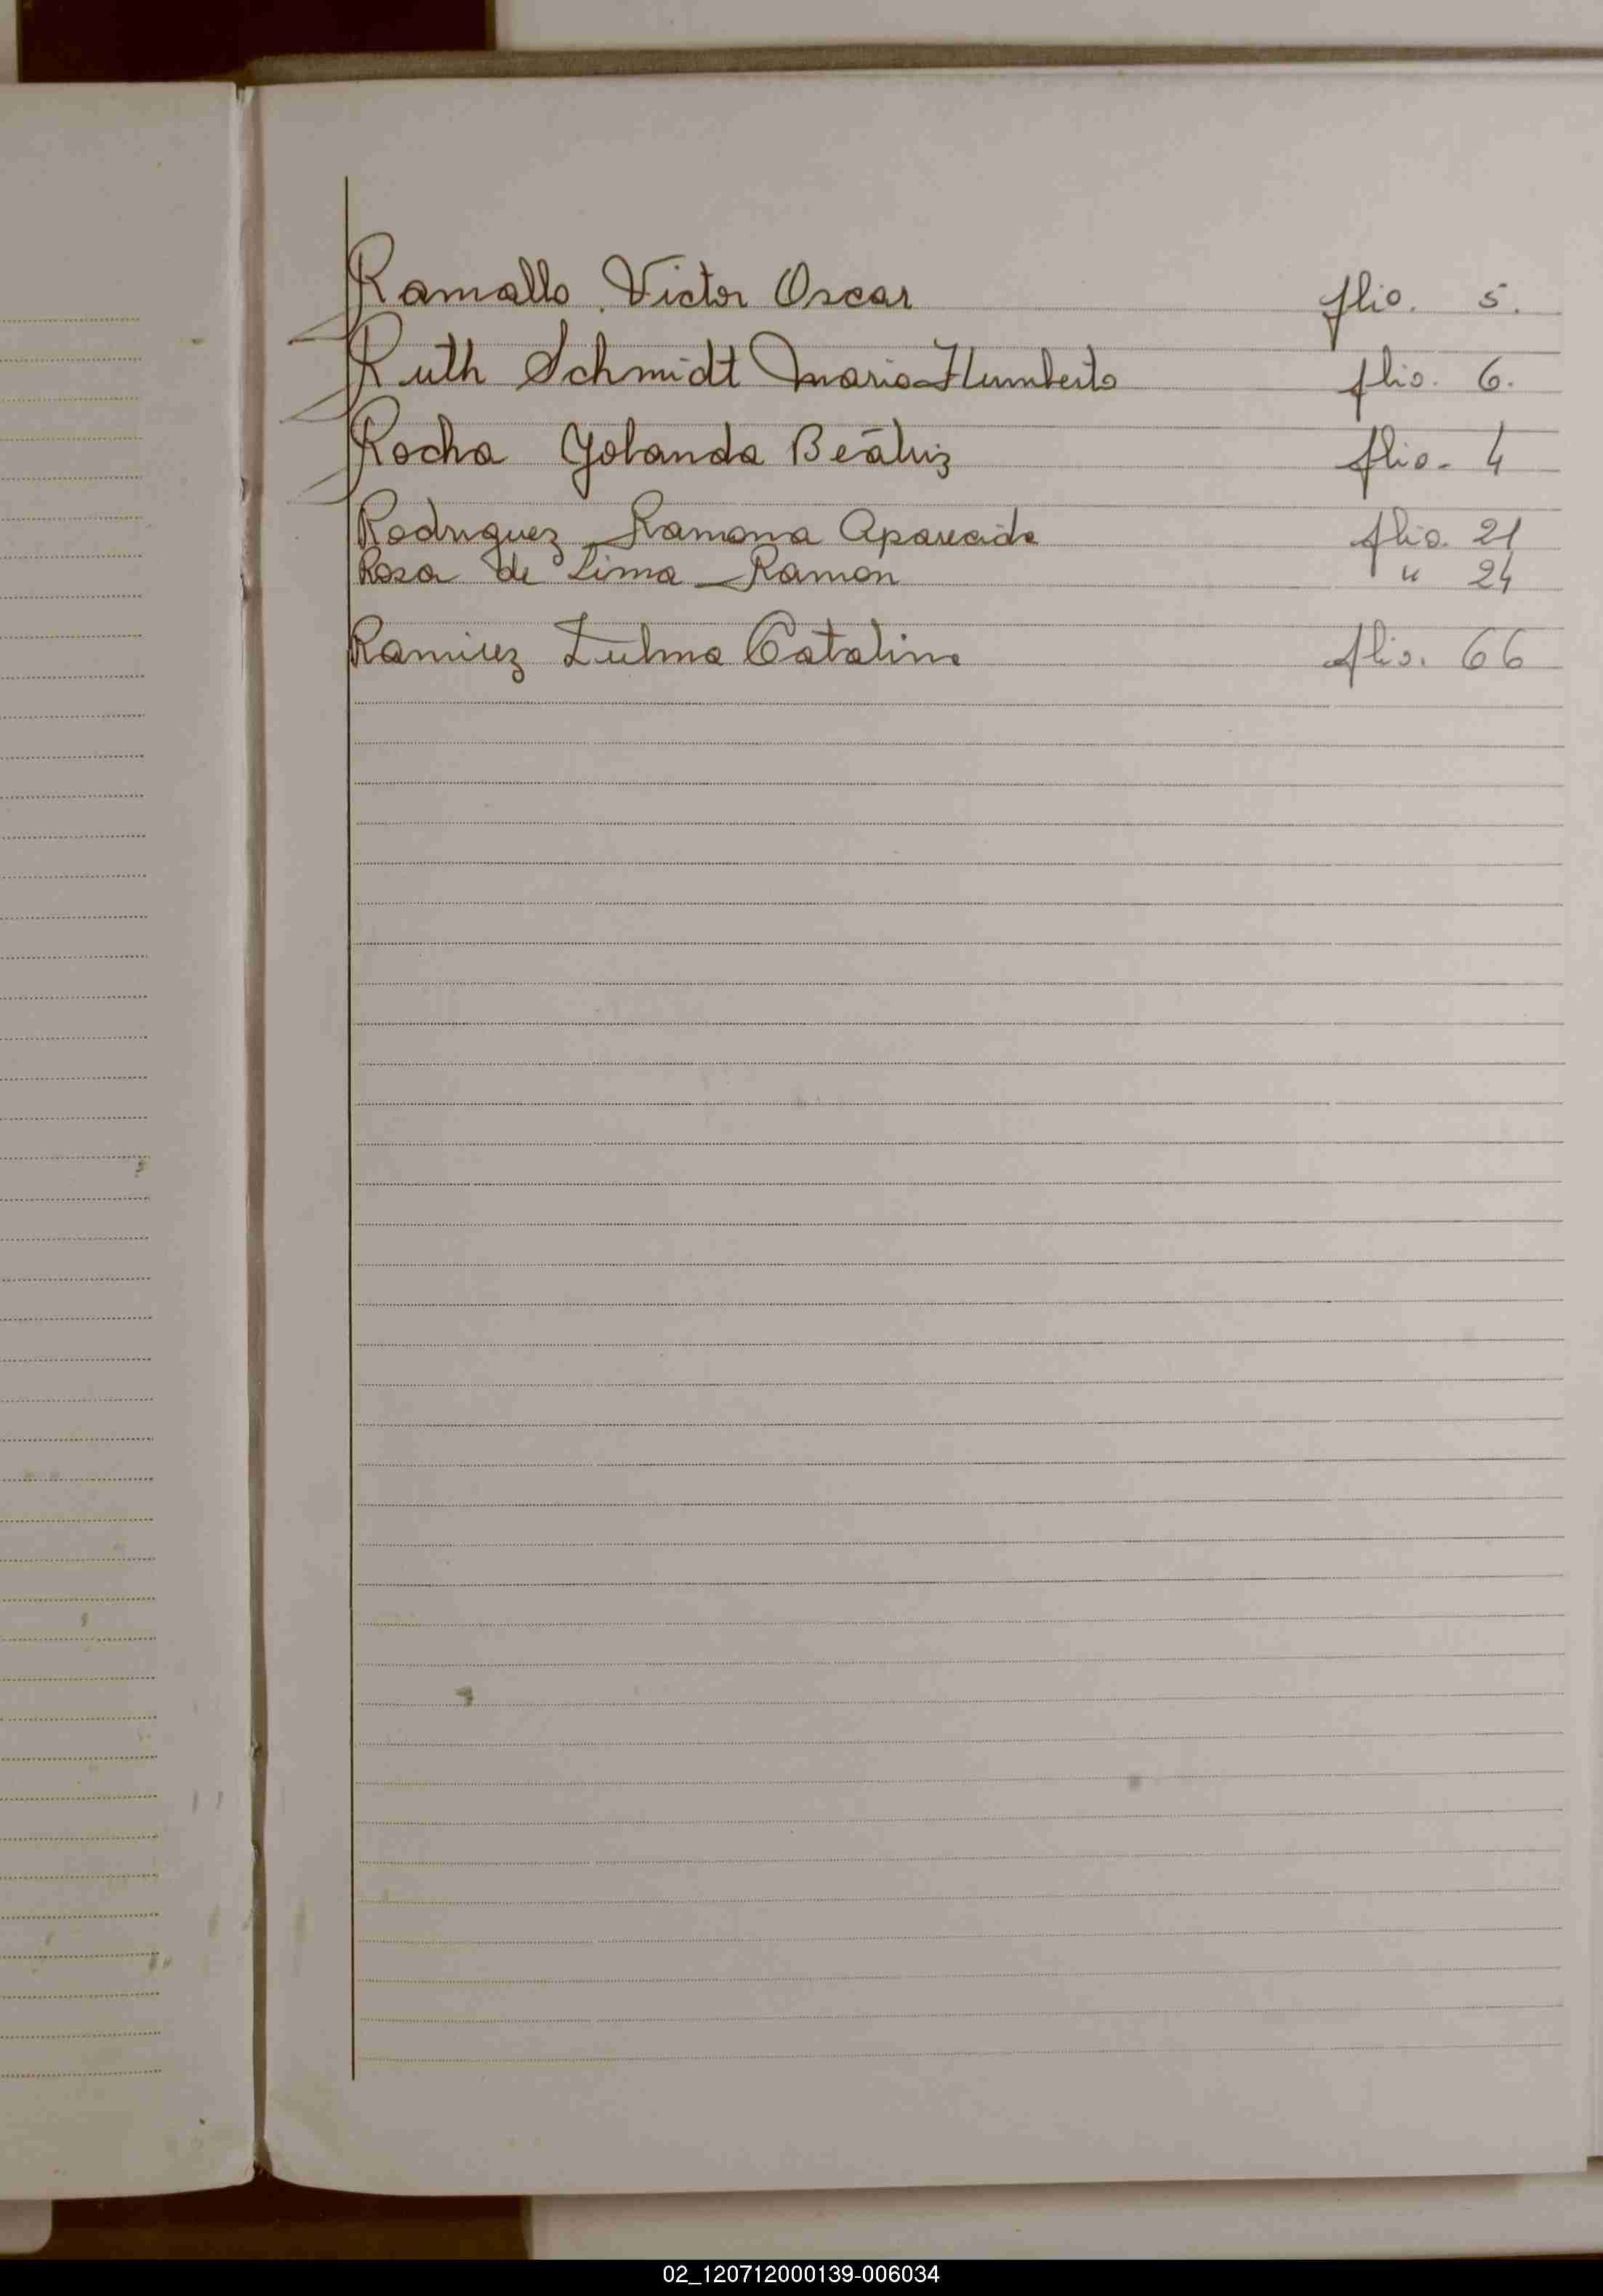 Ramallo Victor Oscar flio. 5.
Ruth Schmidt Mario Humberto flio. 6.
Rocha Yolanda Beátriz flio. 4
Rodriguez Ramona Aparecida flio. 21
Rosa de Lima Ramon " 24
Ramirez Zulma Catalina flio. 66
02_120712000139-006034